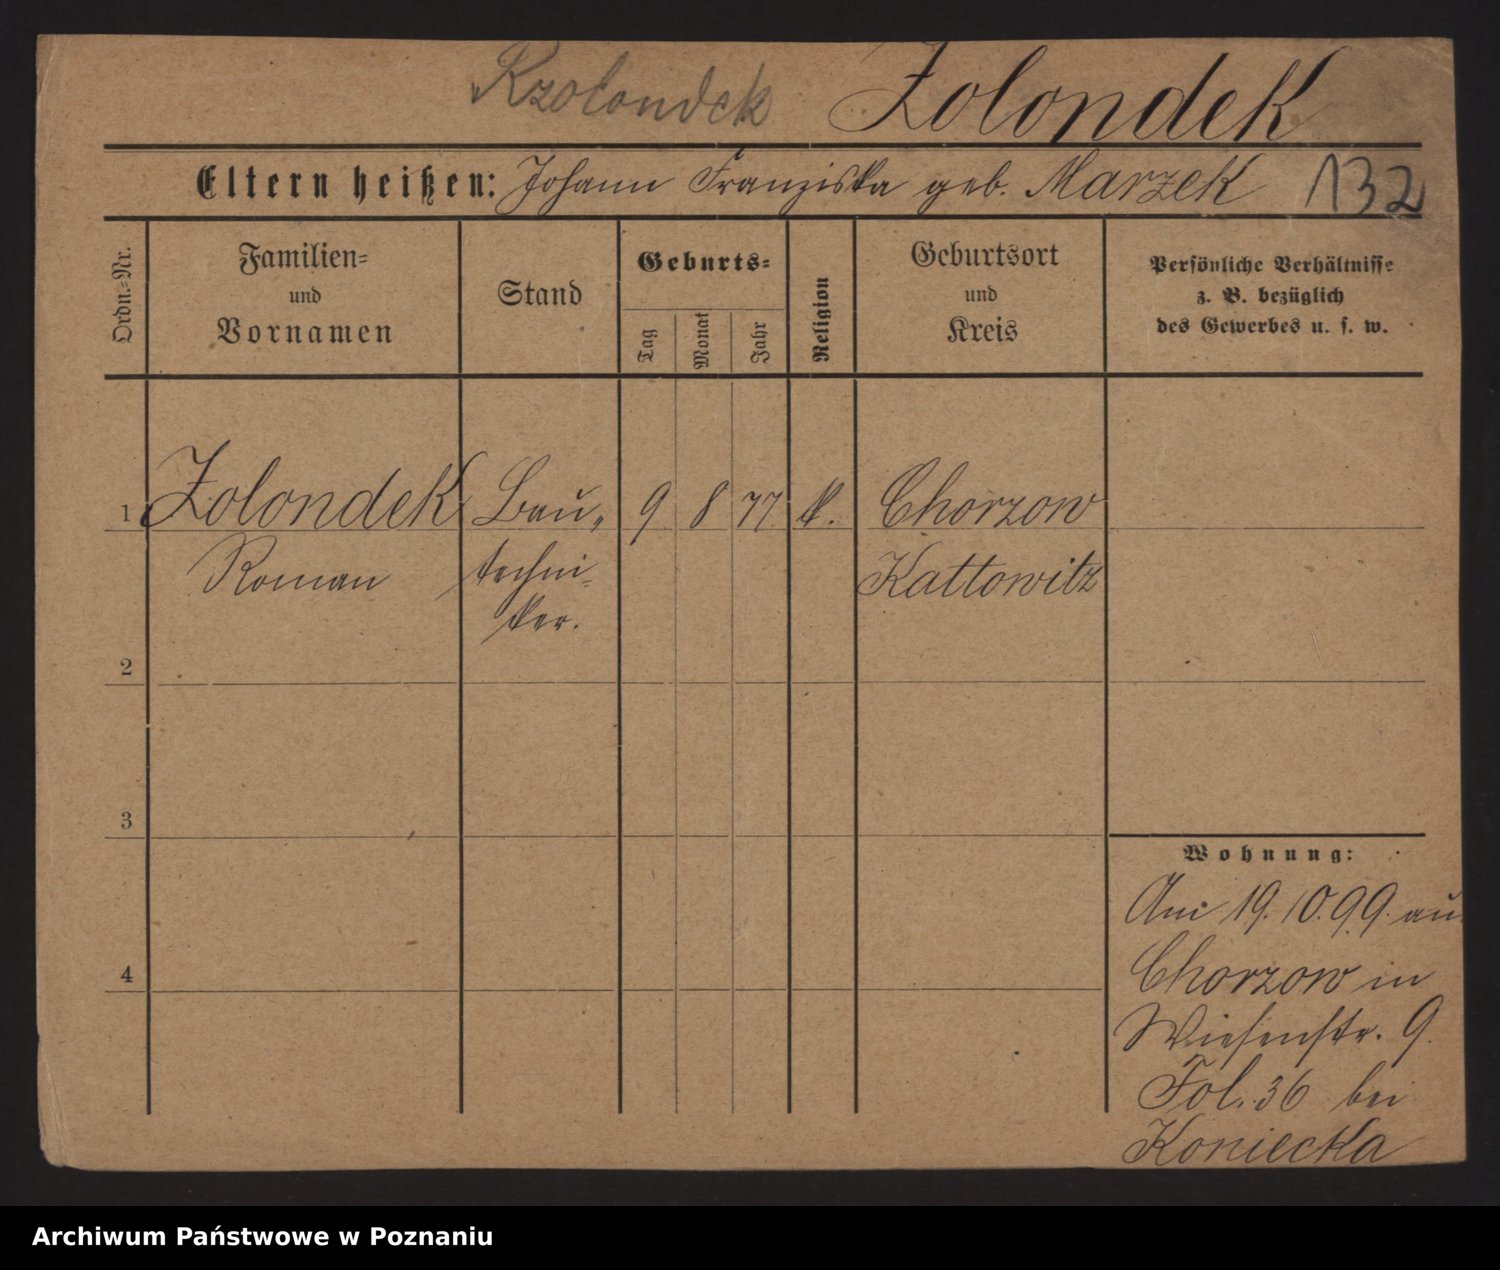 Rzolondek Zolondek
Eltern heißen: Johann Franziska geb. Marzek 132
Ordn.-Nr.
Familien-
und
Vornamen
Stand
Geburts-
Tag
Monat
Jahr
Religion
Geburtsort
und
Kreis
Persönliche Verhältnisse
z. B. bezüglich
des Gewerbes u. s. w.
1 Zolondek Bau- 9 8 77 k. Chorzow
Roman techni- Kattowitz
ker.
2
3
4
Wohnung:
Am 19.10.99. aus
Chorzow in
Wiesenstr. 9.
Fol. 36 bei
Koniecka
Archiwum Państwowe w Poznaniu